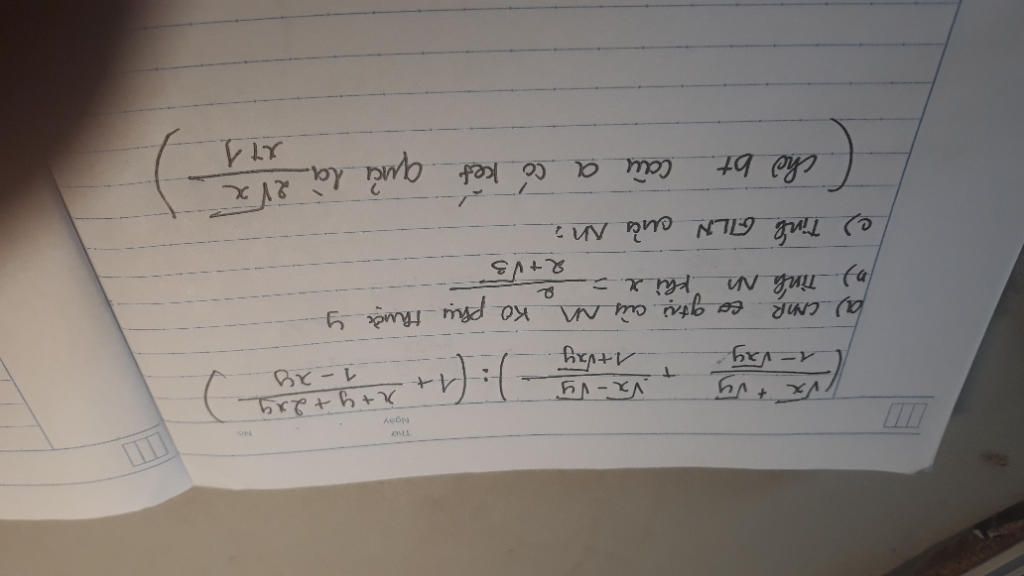 Thứ
Ngày
No.
(√x + √y / 1 - √xy + √x - √y / 1 + √xy) : (1 + x + y + 2xy / 1 - xy)
a) CMR gtrị của M ko phụ thuộc y
b) Tính M khi x = 2 / 2 + √3
c) Tính GTLN của M:
(cho bt câu a có kết quả là 2√x / x + 1)